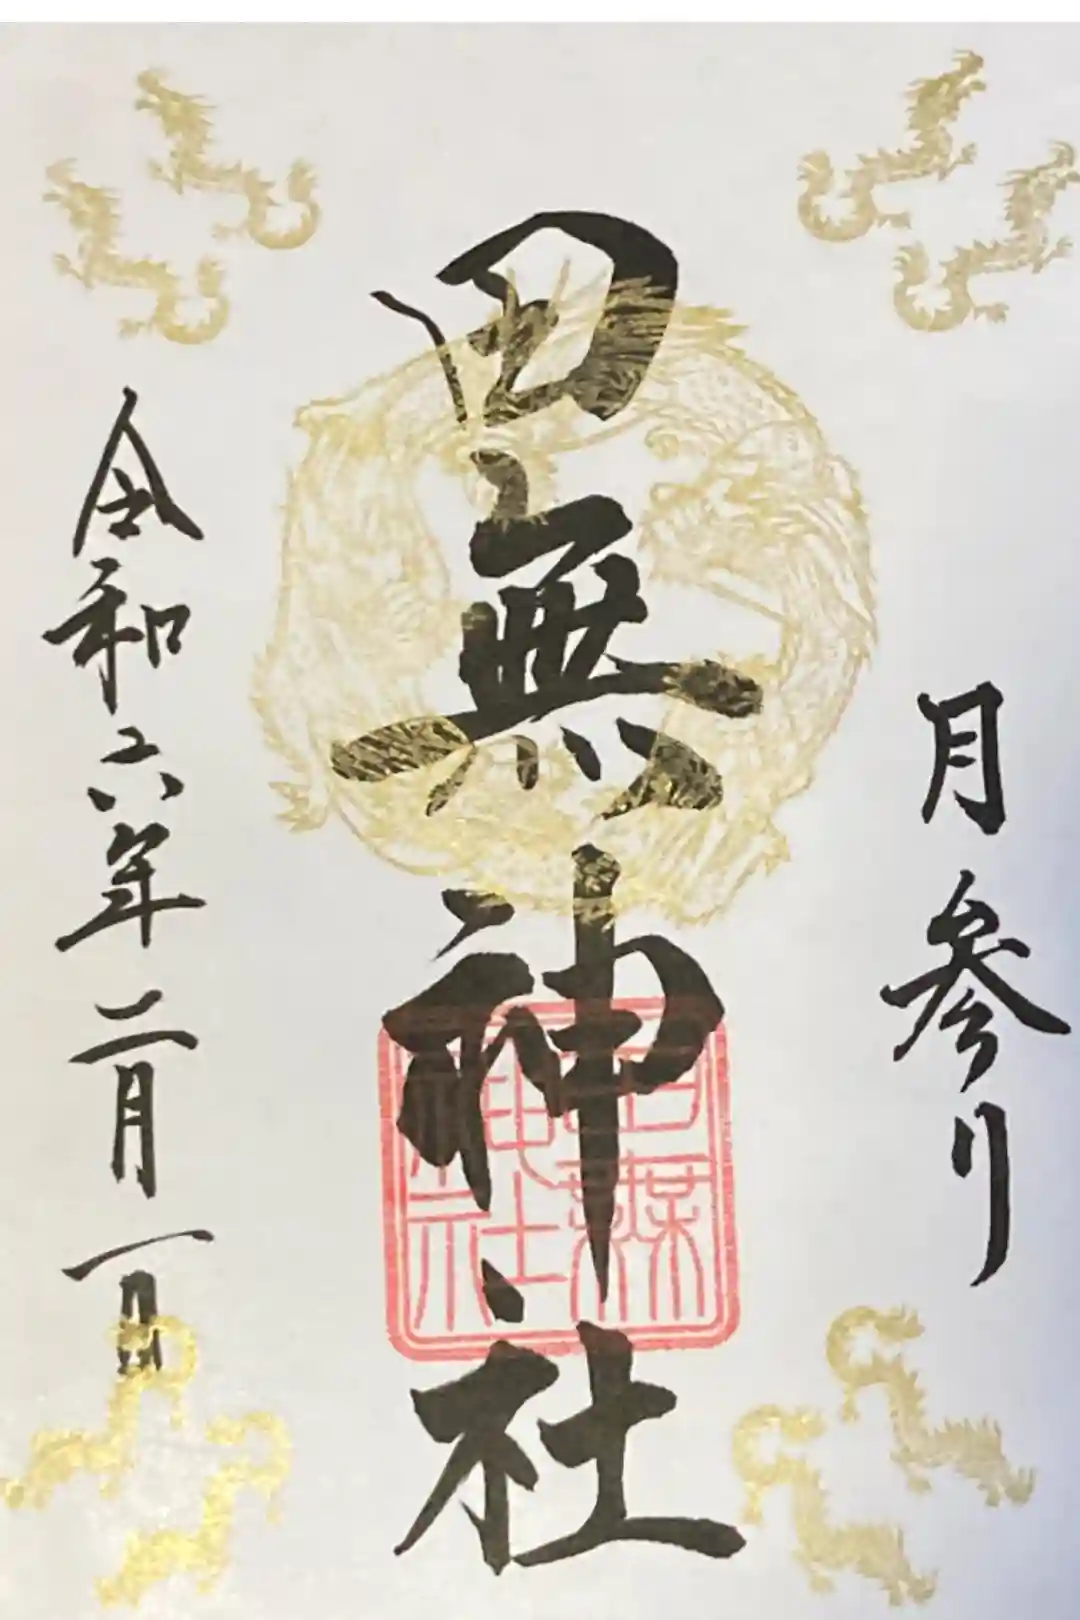 月参り
田無神社
田無神社
令和六年二月一日